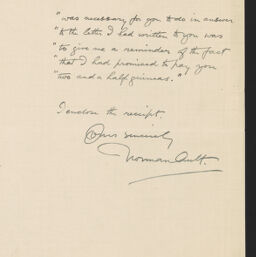 "was necessary for you to do in answer
"to the letter I had written to you was
"to give me a reminder of the fact
"that I had promised to pay you
"two and a half guineas."
I enclose the receipt.
Yours sincerely
Norman Ault.